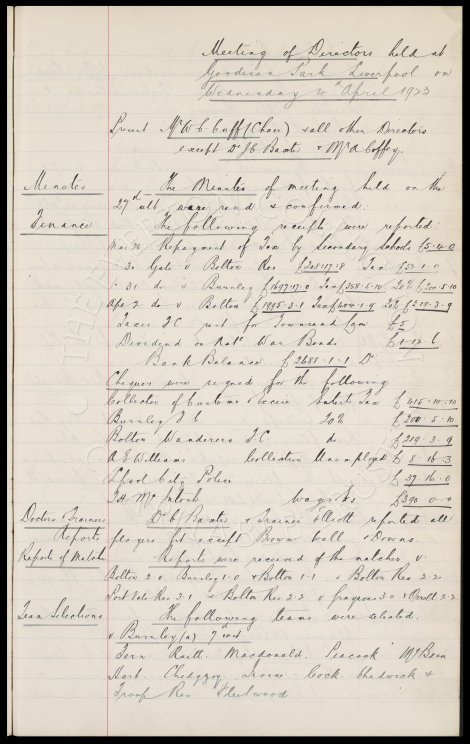 Meeting of Directors held at
Goodison Park Liverpool on
Wednesday April 1923.
Present Mr W C Cuff (Chair) & all other Directors
except Dr J C Baxter & Mr A Coffey.
Minutes The Minutes of meeting held on the
27th ult. were read & confirmed.
Finance The following receipts were reported:
Mar 26 Repayment of Tax by Secondary Schools £5.14.0
" 30 Gate v Bolton Res Tax
" 31 do v Burnley £1697.17.0 Tax £388.5.10 20% £200.5.10
Apl 2 do v Bolton £1995.3.1 Tax £409.1.9 20% £219.3.9
F.C. for Townsend £5
Dividend on Natl War Bonds £1.12.6
Bank Balance £2688.1.1 Dr
Cheques were signed for the following
Collector of Customs & Excise Entert Tax £415.10.10
Burnley F C 20% £200.5.10
Bolton Wanderers F C do £219.3.9
A E Williams Collection Unemployed £8.16.3
Lpool City Police £37.16.0
T H McIntosh wages &c £390.0.0
Doctors & Trainers Reports Dr C Baxter & Trainer Elliott reported all
players fit except Brown Wall & Downs.
Reports of Matches Reports were received of the matches v.
Bolton 2.0 Burnley 1.0 & Bolton 1.1. v Bolton Res 2.2
Port Vale Res 3.1 & Bolton Res 2.2 v 3.0 & Orrell 2.2
Team Selections The following teams were selected.
v Burnley (a) 7th inst
Fern Raitt Macdonald Peacock McBain
Hart. Chedgzoy. Irvine Cock. Chadwick &
Troup Res Fleetwood